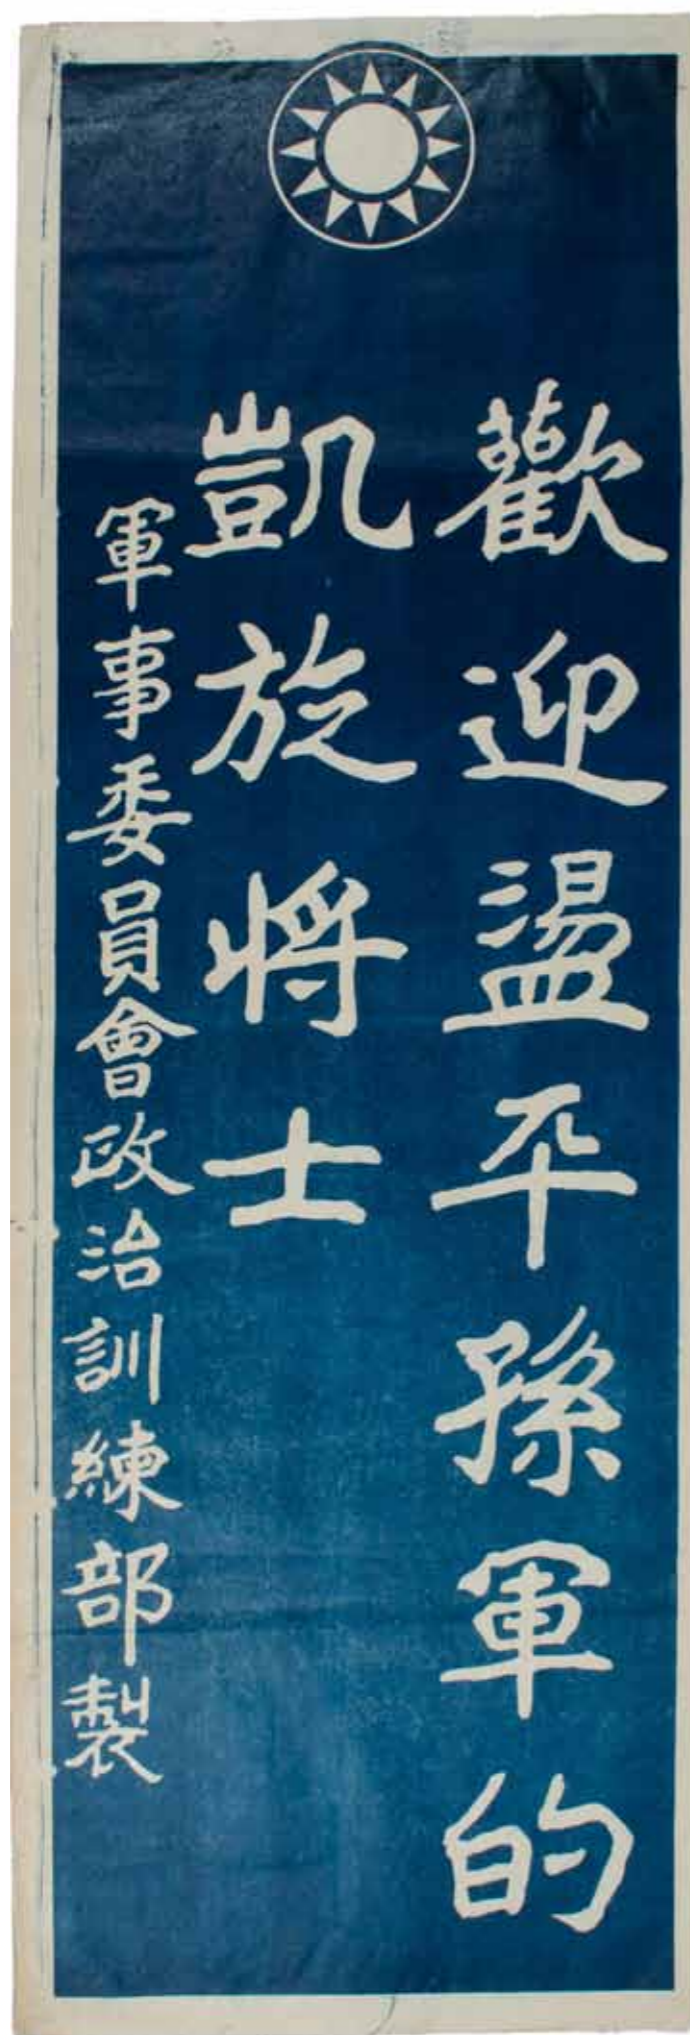 歡迎盪平孫軍的
凱旋將士
軍事委員會政治訓練部製